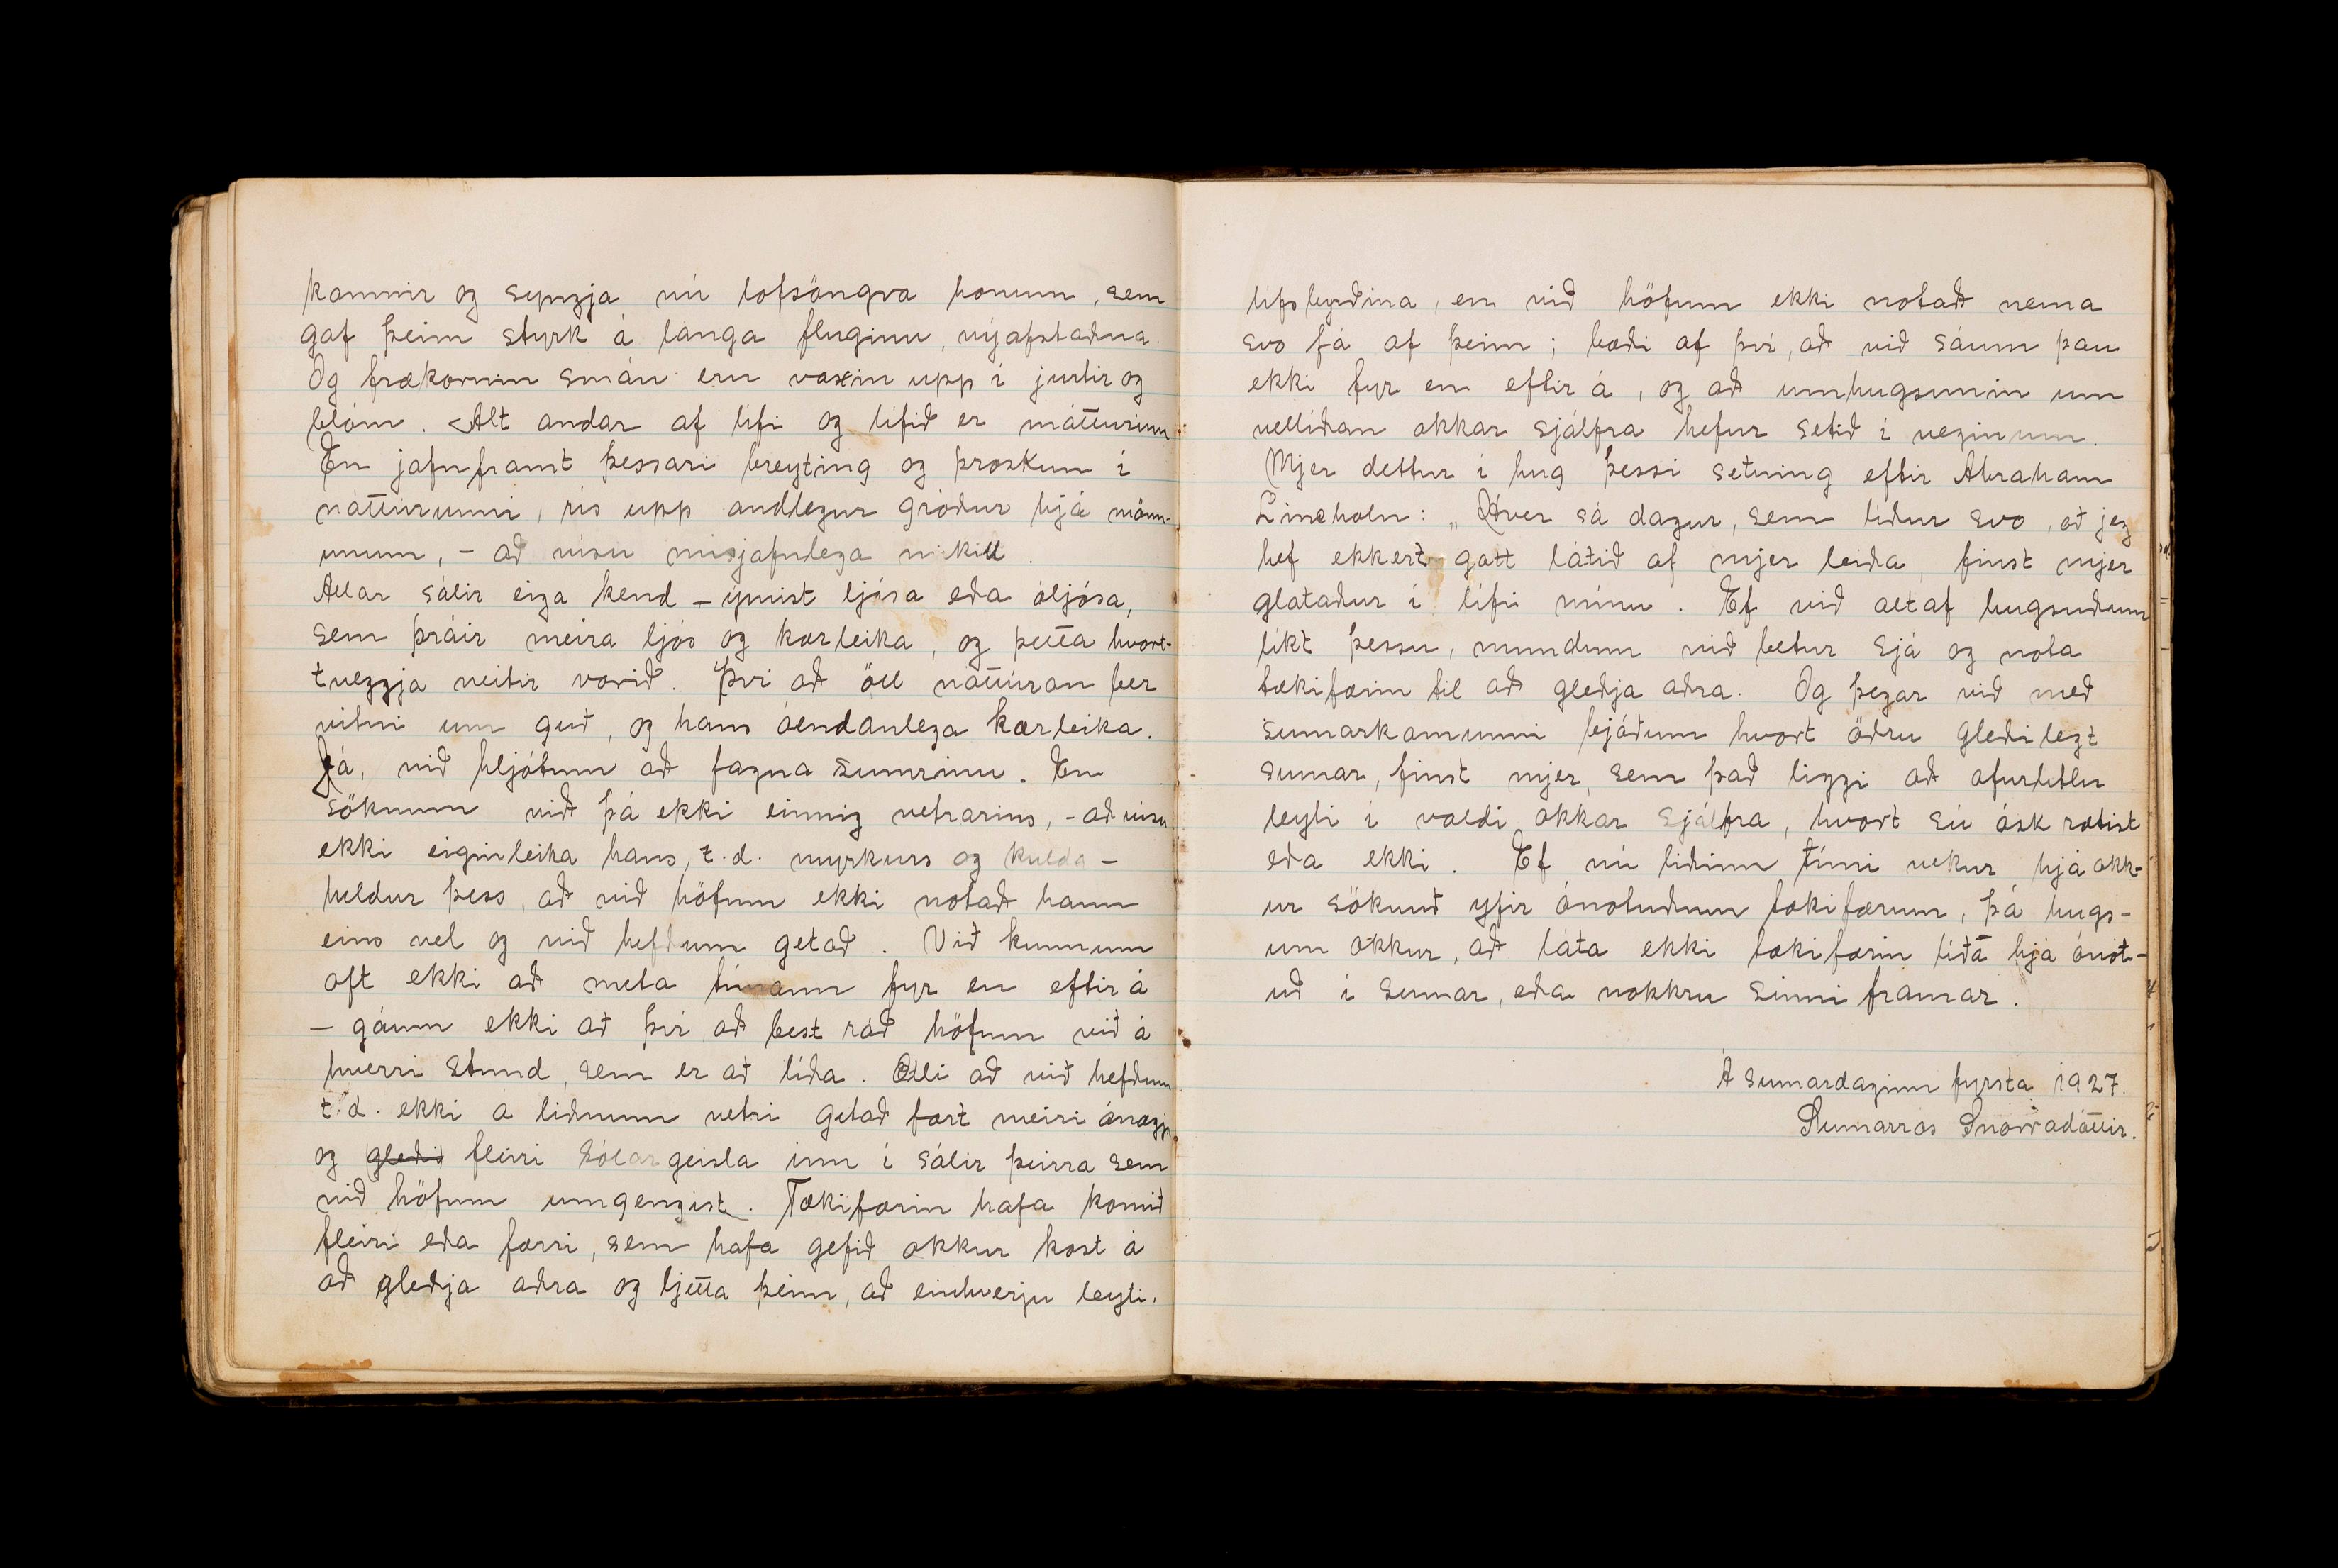 komnir og syngja nú lofsöngva honum, sem
gaf þeim styrk á langa fluginu, nýafstaðna.
Og frækornin smáu eru vaxin upp í jurtir og
blóm. Alt andar af lífi og lífið er mátturinn
En jafnframt þessari breyting og þroskun í
náttúrunni, rís upp andlegur gróður hjá mönn-
unum, - að vísu misjafnlega mikill.
Allar sálir eiga kend - ýmist ljósa eða óljósa,
sem þráir meira ljós og kærleika, og þetta hvort-
tveggja veitir vorið. Því að öll náttúran ber
vitni um guð, og hans óendanlega kærleika.
Já, við hljótum að fagna sumrinu. En
söknum við þá ekki einnig vetrarins, - að vísu
ekki eiginleika hans, t.d. myrkurs og kulda -
heldur þess, að við höfum ekki notað hann
eins vel og við hefðum getað. Við kunnum
oft ekki að meta tímann fyr en eftir á
- gáum ekki að því að best ráð höfum við á
hverri stund, sem er að líða. Ætli að við hefðum
t.d. ekki á liðnum vetri getað fært meiri ánægju
og gleði fleiri sólargeisla inn í sálir þeirra sem
við höfum umgengist. Tækifærin hafa komið
fleiri eða færri, sem hafa gefið okkur kost á
að gleðja aðra og ljetta þeim, að einhverju leyti,
lífsbyrðina, en við höfum ekki notað nema
svo fá af þeim; bæði af því, að við sáum þau
ekki fyr en eftir á, og að umhugsunin um
vellíðan okkar sjálfra hefur setið í veginum.
Mjer dettur í hug þessi setning eftir Abraham
Lincholn: „Hver sá dagur, sem líður svo, að jeg
hef ekkert gott látið af mjer leiða, finst mjer
glataður í lífi mínu. Ef við altaf hugsuðum
líkt þessu, mundum við betur sjá og nota
tækifærin til að gleðja aðra. Og þegar við með
sumarkomunni bjóðum hvort öðru gleðilegt
sumar, finst mjer, sem það liggi að ofurlitlu
leyti í valdi okkar sjálfra, hvort sú ósk rætist
eða ekki. Ef nú liðinn tími vekur hjá okk-
ur söknuð yfir ónotuðum tækifærum, þá hugs-
um okkur, að láta ekki tækifærin líða hjá ónot-
uð í sumar, eða nokkru sinni framar.
Á sumardaginn fyrsta 1927.
Sumarrós Snorradóttir.